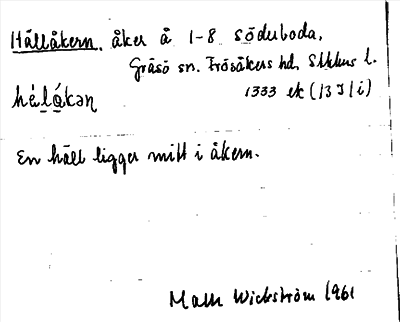 Hällåkern, åker å 1-8 Söderboda,
Gräsö sn. Frösåkers hd, Sthlms l.
hé̠lå̠kən 1333 ek (13 I 1 i)
En häll ligger mitt i åkern.
Mats Wickström 1961